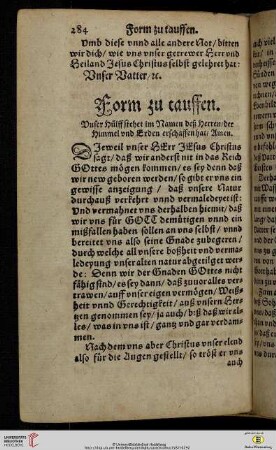 284 Form zu tauffen.
Vmb diese vnnd alle andere Not/bitten
wir dich/ wie vns vnser getrewer Herr vnd
Heiland Jesus Christus selbst gelehret hat:
Vnser Vatter/ꝛc.
Form zu tauffen.
Vnser Hülff stehet im Namen deß Herren/der
Himmel vnd Erden erschaffen hat/ Amen.
DJeweil vnser HErr JEsus Christus
sagt/ daß wir anderst nit in das Reich
GOttes mögen kommen/ es sey denn daß
wir new geboren werden/ so gibt er vns ein
gewisse anzeigung / daß vnsere Natur
durchauß verkehrt vnnd vermaledeyet ist:
Vnd vermahnet vns derhalben hiemit/ daß
wir vns für GOTT demütigen vnnd ein
mißfallen haben sollen an vns selbst/ vnnd
bereitet vns also seine Gnade zubegeren/
durch welche all vnsere boßheit vnd verma-
ledeyung vnser alten natur abgetilget wer-
de: Denn wir der Gnaden GOttes nicht
fähig sind/ es sey dann/ daß zuuor alles ver-
trawen/ auff vnser eigen vermögen/ Weiß-
heit vnnd Gerechtigkeit/ auß vnsern Her-
tzen genommen sey/ ja auch/ biß daß wir al-
les/ was in vns ist/ gantz vnd gar verdam-
men.
Nachdem vns aber Christus vnser elend
also für die Augen gestellt/ so tröst er vns
auch